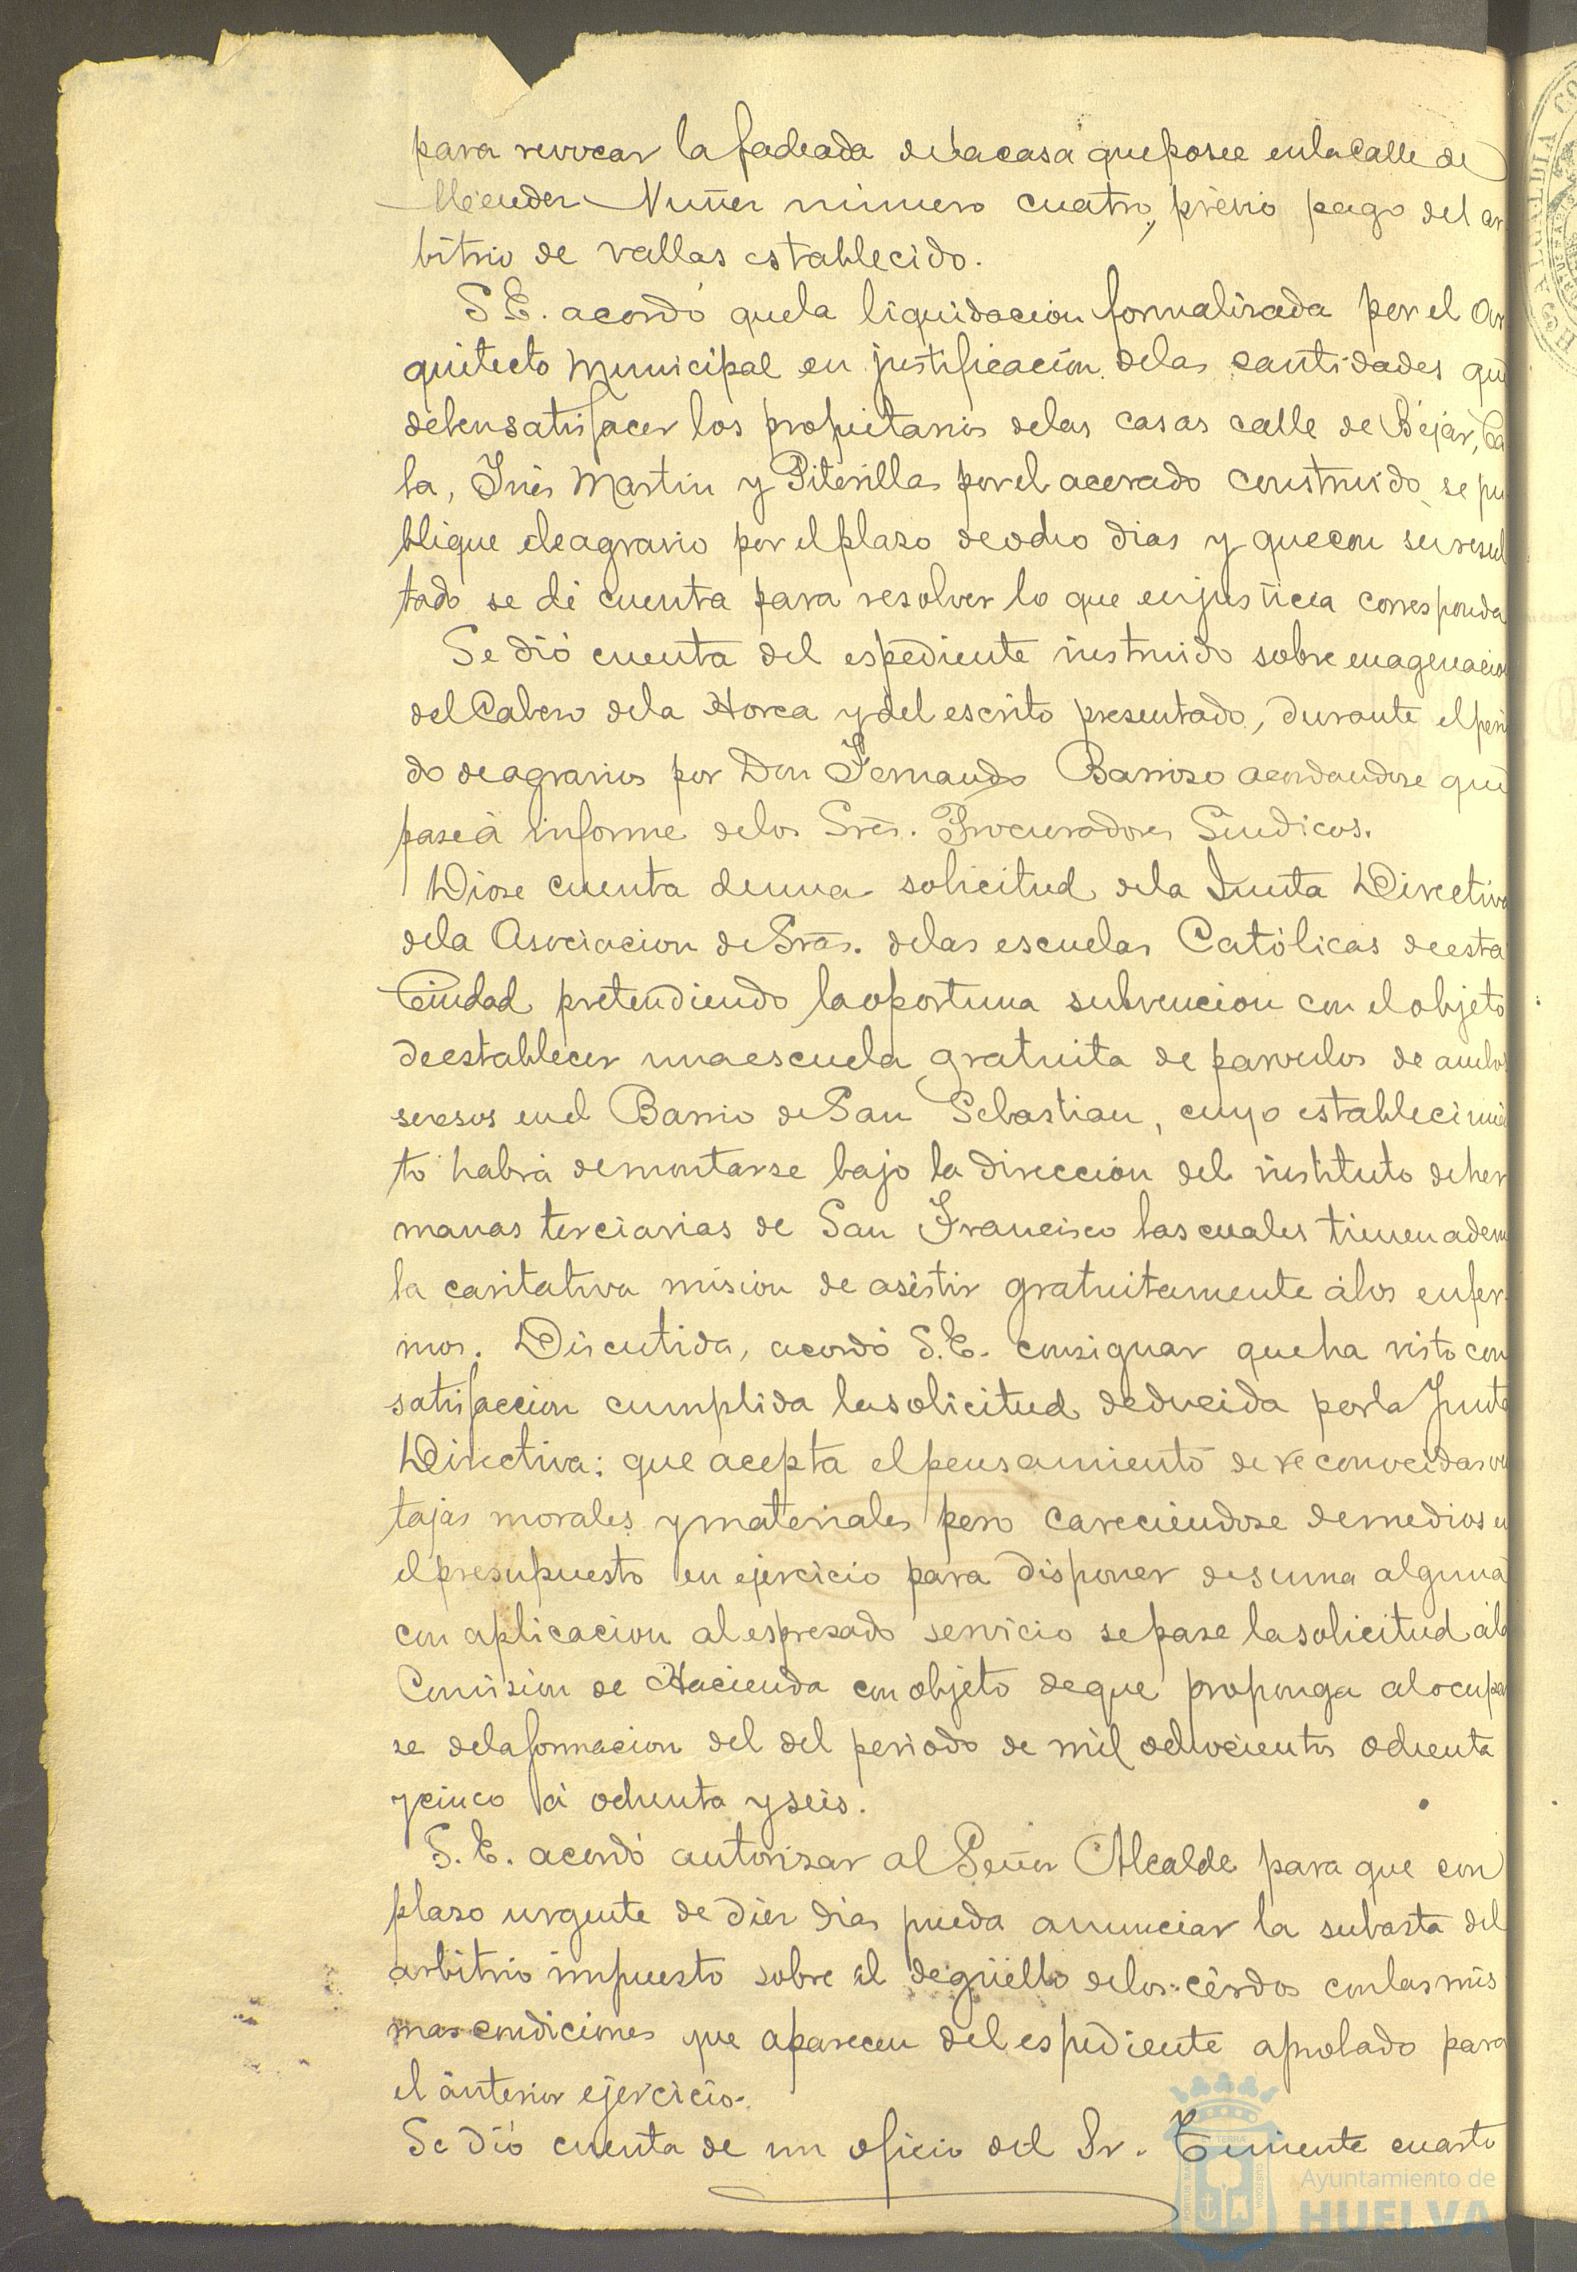 para revocar la fachada de la casa que posee en la Calle de
Mendez Nuñez número cuatro, prévio pago del ar
bitrio de vallas establecido.
S. E. acordó que la liquidacion formalizada por el Ar
quitecto Municipal en justificación de las cantidades que
deben satisfacer los propietarios de las casas calle de Béjar, Ca
la, Inés Martin y Piterilla por el acerado construido se pu
blique de agravio por el plazo de ocho dias y que con su resul
tado se dé cuenta para resolver lo que en justicia corresponda
Se dió cuenta del espediente instruido sobre enagenacion
del Cabezo de la Horca y del escrito presentado, durante el perio
do de agravios por Don Fernando Barroso acordandose que
pase á informe de los Sres. Procuradores Síndicos.
Diose cuenta de una solicitud de la Junta Directiva
de la Asociacion de Sras. de las escuelas Católicas de esta
Ciudad pretendiendo la oportuna subvencion con el objeto
de establecer una escuela gratuita de parvulos de ambos
secsos en el Barrio de San Sebastian, cuyo establecimien
to habrá de montarse bajo la dirección del instituto de her
manas terciarias de San Francisco las cuales tienen adem
la caritativa misión de asistir gratuitamente á los enfer
mos. Discutida, acordó S. E. consignar que ha visto con
satisfaccion cumplida la solicitud deducida por la Junta
Directiva: que acepta el pensamiento de reconocidas ven
tajas morales y materiales pero careciendose de medios en
el presupuesto en ejercicio para disponer de suma alguna
con aplicacion al espresado servicio se pase la solicitud á la
Comision de Hacienda con objeto de que proponga al ocupar
se de la formacion del del periodo de mil ochocientos ochenta
y cinco á ochenta y seis.
S. E. acordó autorizar al Señor Alcalde para que con
plazo urgente de diez dias pueda anunciar la subasta del
arbitrio impuesto sobre el degüello de los cerdos con las mis
mas condiciones que aparecen del espediente aprobado para
el anterior ejercicio.
Se dió cuenta de un oficio del Sr. Teniente cuarto
Ayuntamiento de
HUELVA